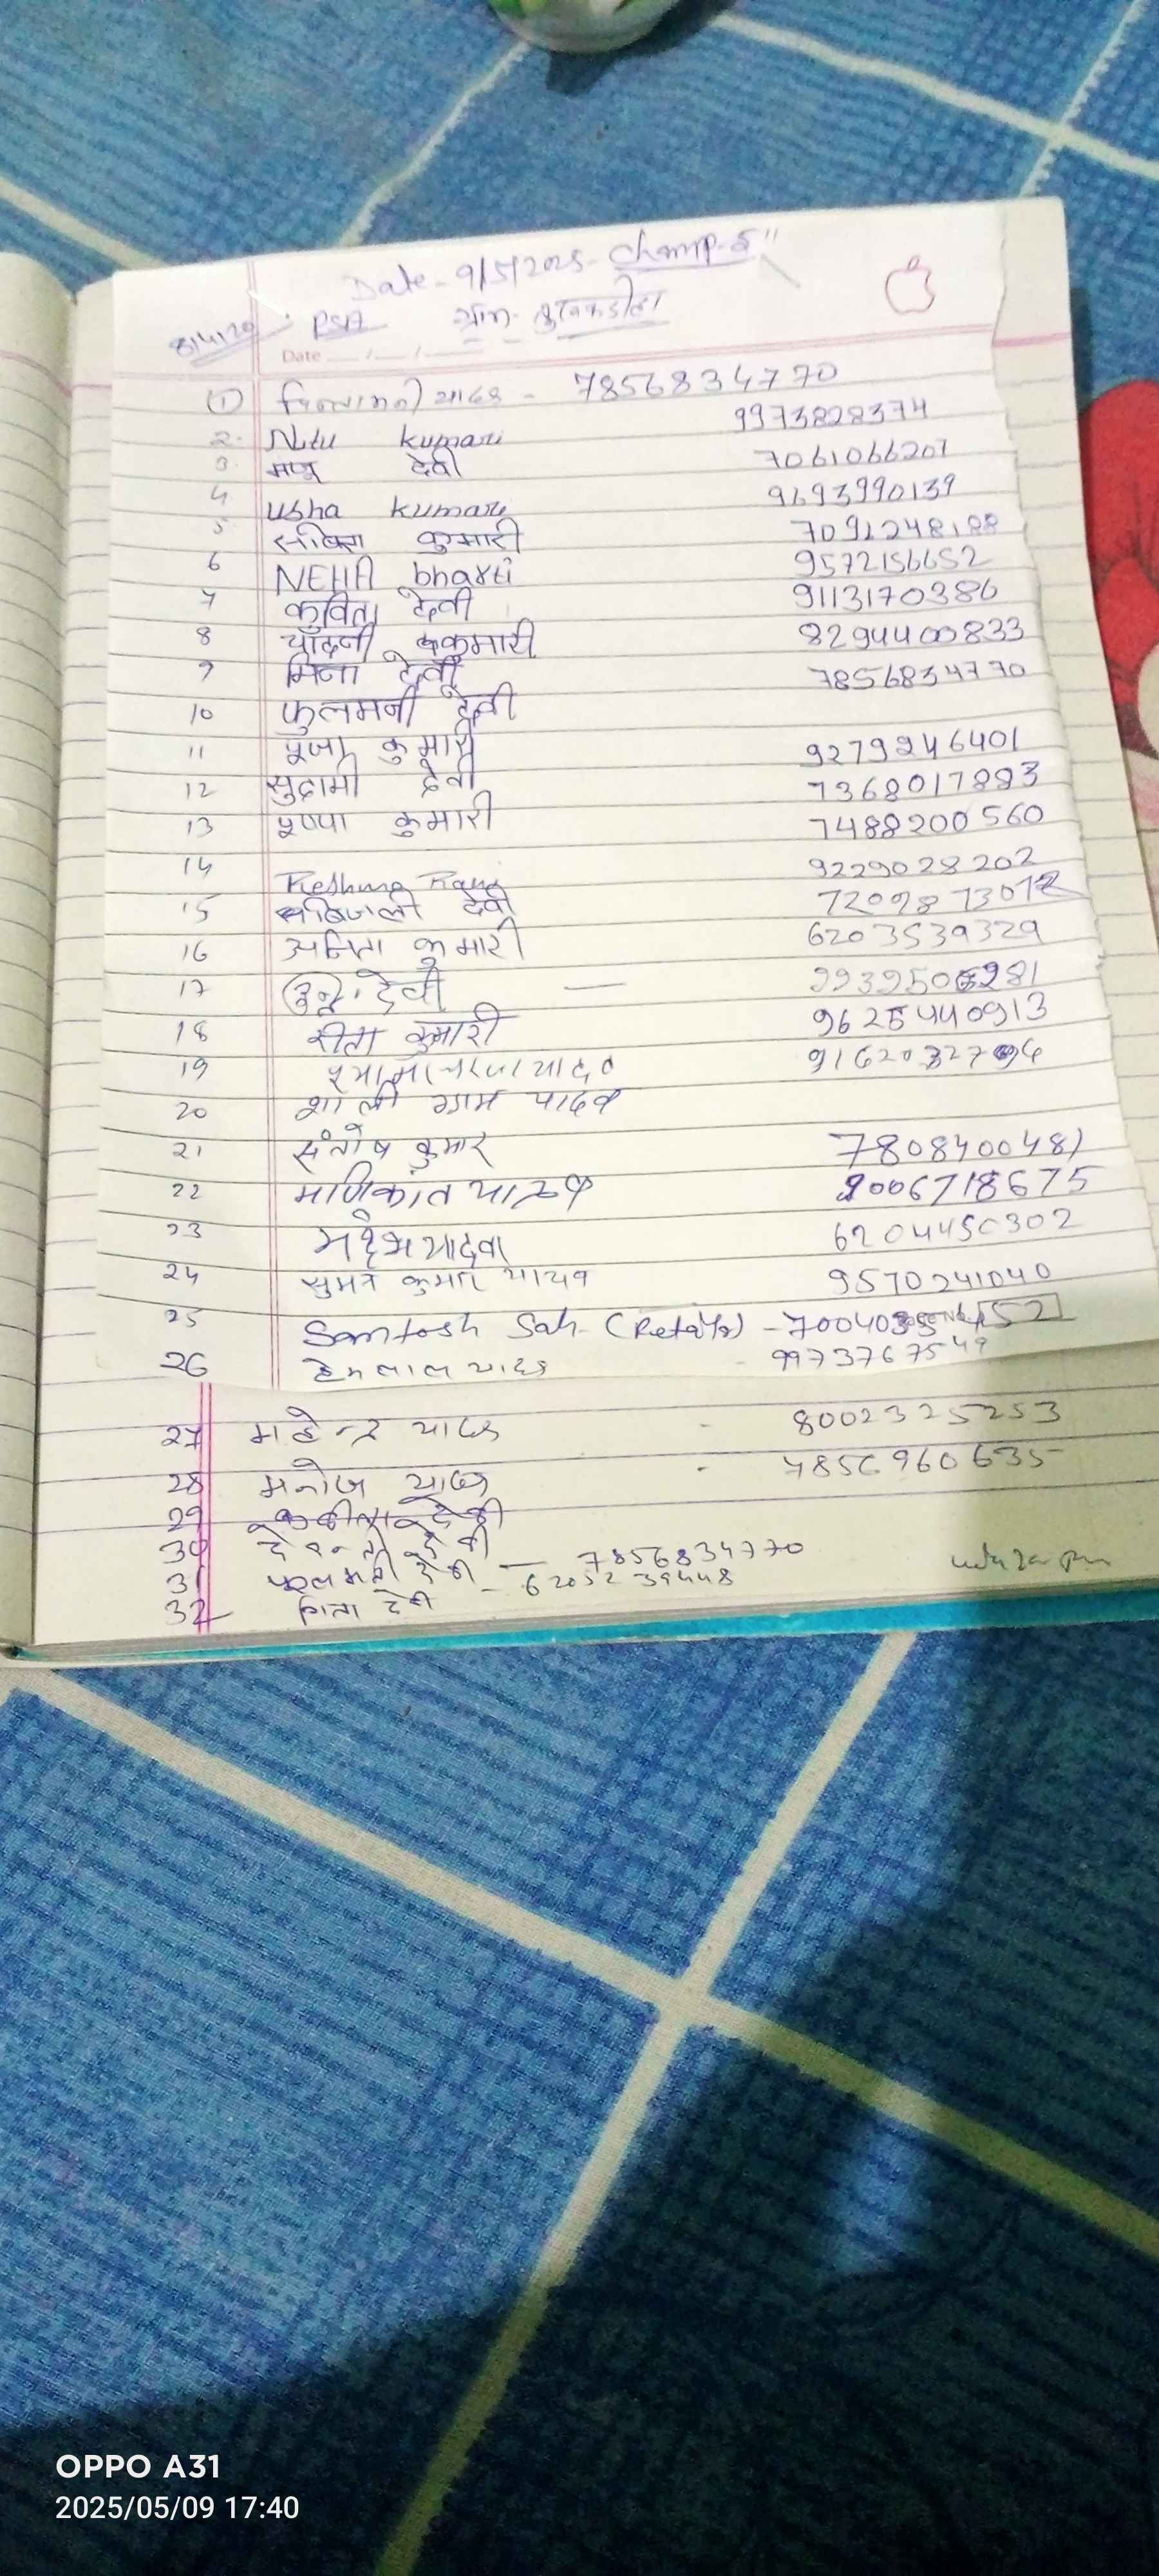 Date - 9/5/2025 - Champ-5"
8/4/20 PSA ग्राम-
Date __/__/__
(1) चिन्तामनी यादव - 7856834770
2. Nitu kumari 9973828374
3. मंजू देवी 7061066207
4 Usha kumari 9693990139
5 सबिता कुमारी 7091248188
6 NEHA bharti 9572156652
7 कविता देवी 9113170386
8 चाँदनी कुमारी 8294400833
9 मिना देवी 7856834770
10 फुलमनी देवी
11 पूजा कुमारी 9279246401
12 सुदामी देवी 7368017883
13 पुष्पा कुमारी 7488200560
14 Reshma 9229028202
15 देवी 7209873012
16 अनिता कुमारी 6203539329
17 देवी — 281
18 रीता कुमारी 9625440913
19 यादव
20 शाली ग्राम यादव
21 संतोष कुमार 7808400481
22 माणिकांत यादव 9006718675
23 महेश यादव 6204450302
24 सुमन कुमार यादव 9570241040
25 Santosh Sah - 52
26 हेमलाल यादव - 9973767549
27 महेन्द्र यादव - 8002325253
28 मनोज यादव - 7856960635
29
30 देवन्ती देवी
31 फुलमनी देवी — 7856834770
32 गिता देवी - 6205239448
OPPO A31
2025/05/09 17:40